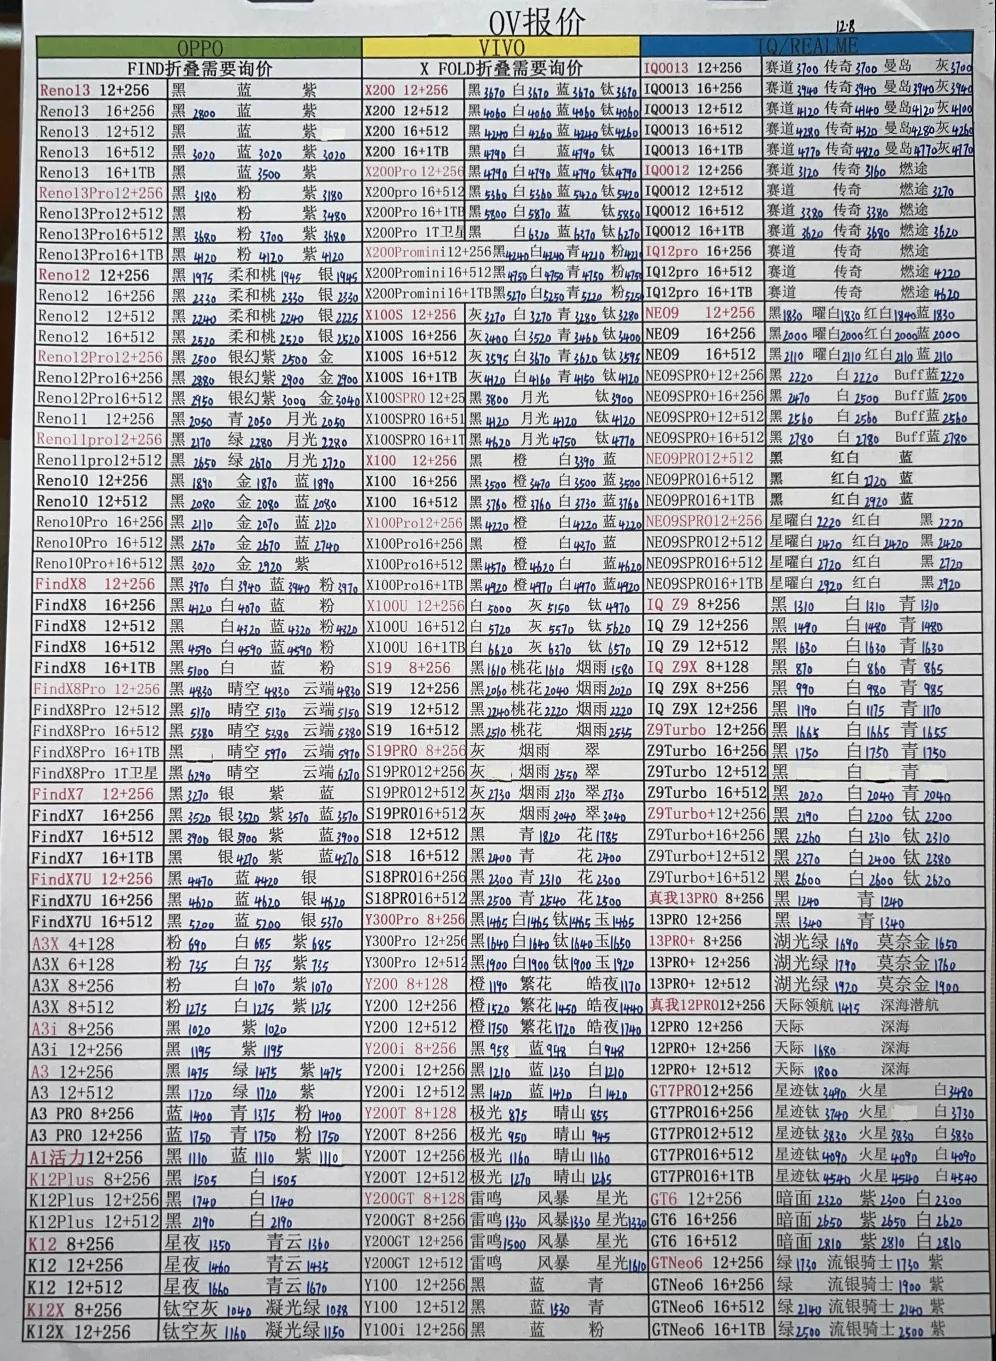 OV报价
12.8
OPPO VIVO IQ/REALME
FIND折叠需要询价 X FOLD折叠需要询价 IQOO13 12+256 赛道3700 传奇3700 曼岛 灰3700
Reno13 12+256 黑 蓝 紫 X200 12+256 黑3670 白3670 蓝3670 钛3670 IQOO13 16+256 赛道3940 传奇3940 曼岛3940 灰3940
Reno13 16+256 黑2800 蓝 紫 X200 12+512 黑4060 白4060 蓝4060 钛4060 IQOO13 12+512 赛道4120 传奇4140 曼岛4120 灰4100
Reno13 12+512 黑 蓝 紫 X200 16+512 黑4240 白4260 蓝4240 钛4260 IQOO13 16+512 赛道4280 传奇4320 曼岛4280 灰4260
Reno13 16+512 黑3020 蓝3020 紫3020 X200 16+1TB 黑4790 白 蓝4790 钛 IQOO13 16+1TB 赛道4770 传奇4820 曼岛4770 灰4770
Reno13 16+1TB 黑 蓝3500 紫 X200Pro 12+256 黑4790 白4790 蓝4790 钛4790 IQOO12 12+256 赛道3120 传奇3160 燃途
Reno13Pro12+256 黑3180 粉 紫3180 X200pro 16+512 黑5360 白5360 蓝5420 钛5420 IQOO12 12+512 赛道 传奇 燃途3270
Reno13Pro12+512 黑 粉 紫3480 X200Pro 16+1TB 黑5800 白5870 蓝 钛5850 IQOO12 16+512 赛道3380 传奇3380 燃途
Reno13Pro16+512 黑3680 粉3700 紫3680 X200Pro 1T卫星 黑 白6320 蓝6370 钛6270 IQOO12 16+1TB 赛道3620 传奇3680 燃途3620
Reno13Pro16+1TB 黑4120 粉4120 紫4120 X200Promini12+256 黑4240 白4240 青4210 粉4210 IQ12pro 16+256 赛道 传奇 燃途
Reno12 12+256 黑1975 柔和桃1945 银1945 X200Promini16+512 黑4750 白4750 青4750 粉4750 IQ12pro 16+512 赛道 传奇 燃途4220
Reno12 16+256 黑2330 柔和桃2330 银2330 X200Promini16+1TB 黑5270 白5250 青5220 粉5250 IQ12pro 16+1TB 赛道 传奇 燃途4620
Reno12 12+512 黑2240 柔和桃2240 银2225 X100S 12+256 灰3270 白3270 青3280 钛3280 NEO9 12+256 黑1830 曜白1830 红白1840 蓝1830
Reno12 16+512 黑2520 柔和桃2520 银2520 X100S 16+256 灰3400 白3520 青3460 钛3400 NEO9 16+256 黑2000 曜白2000 红白2000 蓝2000
Reno12Pro12+256 黑2500 银幻紫2500 金 X100S 16+512 灰3595 白3670 青3620 钛3595 NEO9 16+512 黑2110 曜白2110 红白2110 蓝2110
Reno12Pro16+256 黑2880 银幻紫2900 金2900 X100S 16+1TB 灰4120 白4160 青4150 钛4120 NEO9SPRO+12+256 黑2220 白2220 Buff蓝2220
Reno12Pro16+512 黑2950 银幻紫3000 金3040 X100SPRO 12+25 黑3800 月光 钛3900 NEO9SPRO+16+256 黑2470 白2500 Buff蓝2500
Reno11 12+256 黑2050 青2050 月光2050 X100SPRO 16+51 黑4120 月光4120 钛4120 NEO9SPRO+12+512 黑2560 白2560 Buff蓝2560
Reno11pro12+256 黑2170 绿2280 月光2280 X100SPRO 16+1T 黑4620 月光4750 钛4770 NEO9SPRO+16+512 黑2780 白2780 Buff蓝2780
Reno11pro12+512 黑2650 绿2670 月光2720 X100 12+256 黑 橙 白3390 蓝 NEO9PRO12+512 黑 红白 蓝
Reno10 12+256 黑1890 金1870 蓝1890 X100 16+256 黑3500 橙3470 白3500 蓝3500 NEO9PRO16+512 黑 红白2720 蓝
Reno10 12+512 黑2080 金2080 蓝2080 X100 16+512 黑3760 橙3760 白3730 蓝3760 NEO9PRO16+1TB 黑 红白2920 蓝
Reno10Pro 16+256 黑2110 金2070 蓝2120 X100Pro12+256 黑4220 橙 白4220 蓝4220 NEO9SPRO12+256 星曜白2220 红白 黑2220
Reno10Pro 16+512 黑2670 金2670 蓝2740 X100Pro16+256 黑 橙 白4370 蓝 NEO9SPRO12+512 星曜白2420 红白2420 黑2420
Reno10Pro+16+512 黑3020 金2920 紫 X100Pro16+512 黑4570 橙4620 白 蓝4620 NEO9SPRO16+512 星曜白2720 红白 黑2720
FindX8 12+256 黑3970 白3940 蓝3940 粉3970 X100Pro16+1TB 黑4920 橙4970 白4970 蓝4920 NEO9SPRO16+1TB 星曜白2920 红白 黑2920
FindX8 16+256 黑4120 白4070 蓝 粉 X100U 12+256 白5000 灰5150 钛4970 IQ Z9 8+256 黑1310 白1310 青1310
FindX8 12+512 黑 白4320 蓝4320 粉4320 X100U 16+512 白5720 灰5570 钛5620 IQ Z9 12+256 黑1490 白1480 青1480
FindX8 16+512 黑4590 白4590 蓝4590 粉 X100U 16+1TB 白6620 灰6370 钛6570 IQ Z9 12+512 黑1630 白1630 青1630
FindX8 16+1TB 黑5100 白 蓝 粉 S19 8+256 黑1610 桃花1610 烟雨1580 IQ Z9X 8+128 黑870 白860 青865
FindX8Pro 12+256 黑4830 晴空4830 云端4830 S19 12+256 黑2060 桃花2040 烟雨2020 IQ Z9X 8+256 黑990 白980 青985
FindX8Pro 12+512 黑5170 晴空5130 云端5150 S19 12+512 黑2240 桃花2220 烟雨2220 IQ Z9X 12+256 黑1190 白1175 青1170
FindX8Pro 16+512 黑5380 晴空5380 云端5380 S19 16+512 黑2510 桃花 烟雨2535 Z9Turbo 12+256 黑1665 白1665 青1655
FindX8Pro 16+1TB 黑 晴空5970 云端5970 S19PRO 8+256 灰 烟雨 翠 Z9Turbo 16+256 黑1750 白1750 青1750
FindX8Pro 1T卫星 黑6290 晴空 云端6270 S19PRO12+256 灰 烟雨2550 翠 Z9Turbo 12+512 黑 白 青
FindX7 12+256 黑3270 银 紫 蓝 S19PRO12+512 灰2730 烟雨2730 翠2730 Z9Turbo 16+512 黑2020 白2040 青2040
FindX7 16+256 黑3520 银3520 紫3570 蓝3570 S19PRO16+512 灰 烟雨3040 翠3040 Z9Turbo+12+256 黑2190 白2200 钛2200
FindX7 16+512 黑3900 银3900 紫 蓝3900 S18 12+512 黑 青1820 花1785 Z9Turbo+16+256 黑2260 白2310 钛2310
FindX7 16+1TB 黑 银4270 紫 蓝4270 S18 16+512 黑2400 青 花2400 Z9Turbo+12+512 黑2370 白2400 钛2380
FindX7U 12+256 黑4470 蓝4420 银 S18PRO16+256 黑2300 青2310 花2300 Z9Turbo+16+512 黑2600 白2600 钛2620
FindX7U 16+256 黑4620 蓝4620 银4620 S18PRO16+512 黑2500 青2540 花2500 真我13PRO 8+256 黑1240 青1240
FindX7U 16+512 黑5200 蓝5200 银5370 Y300Pro 8+256 黑1465 白1465 钛1465 玉1465 13PRO 12+256 黑1340 青1340
A3X 4+128 粉690 白685 紫685 Y300Pro 12+256 黑1640 白1640 钛1640 玉1650 13PRO+ 8+256 湖光绿1690 莫奈金1650
A3X 6+128 粉735 白735 紫735 Y300Pro 12+512 黑1900 白1900 钛1900 玉1920 13PRO+ 12+256 湖光绿1790 莫奈金1760
A3X 8+256 粉 白1070 紫1070 Y200 8+128 橙1190 繁花 皓夜1170 13PRO+ 12+512 湖光绿1920 莫奈金1900
A3X 8+512 粉1275 白1275 紫1275 Y200 12+256 橙1520 繁花1450 皓夜1440 真我12PRO12+256 天际领航1415 深海潜航
A3i 8+256 黑1020 紫1020 Y200 12+512 橙1750 繁花1720 皓夜1740 12PRO 12+256 天际 深海
A3i 12+256 黑1195 紫1195 Y200i 8+256 黑958 蓝948 白948 12PRO+ 12+256 天际1680 深海
A3 12+256 黑1475 绿1475 紫1475 Y200i 12+256 黑1210 蓝1230 白1210 12PRO+ 12+512 天际1800 深海
A3 12+512 黑1720 绿1720 紫 Y200i 12+512 黑1420 蓝1420 白1420 GT7PRO12+256 星迹钛3490 火星 白3480
A3 PRO 8+256 蓝1400 青1375 粉1400 Y200T 8+128 极光875 晴山855 GT7PRO16+256 星迹钛3740 火星 白3730
A3 PRO 12+256 蓝1750 青1750 粉1750 Y200T 8+256 极光950 晴山945 GT7PRO12+512 星迹钛3830 火星3830 白3830
A1活力12+256 黑1110 蓝1110 紫1110 Y200T 12+256 极光1160 晴山1160 GT7PRO16+512 星迹钛4090 火星4090 白4090
K12Plus 8+256 黑1505 白1505 Y200T 12+512 极光1270 晴山1265 GT7PRO16+1TB 星迹钛4540 火星4540 白4540
K12Plus 12+256 黑1740 白1740 Y200GT 8+128 雷鸣 风暴 星光 GT6 12+256 暗面2320 紫2300 白2300
K12Plus 12+512 黑2190 白2190 Y200GT 8+256 雷鸣1330 风暴1330 星光1330 GT6 16+256 暗面2650 紫2650 白2620
K12 8+256 星夜1350 青云1360 Y200GT 12+256 雷鸣1500 风暴 星光 GT6 16+512 暗面2810 紫2810 白2810
K12 12+256 星夜1460 青云1435 Y200GT 12+512 雷鸣 风暴 星光1610 GTNeo6 12+256 绿1730 流银骑士1730 紫
K12 12+512 星夜1660 青云1670 Y100 12+256 黑 蓝 青 GTNeo6 16+256 绿 流银骑士1900 紫
K12X 8+256 钛空灰1040 凝光绿1038 Y100 12+512 黑 蓝1530 青 GTNeo6 16+512 绿2140 流银骑士2140 紫
K12X 12+256 钛空灰1160 凝光绿1150 Y100i 12+256 黑 蓝 粉 GTNeo6 16+1TB 绿2500 流银骑士2500 紫